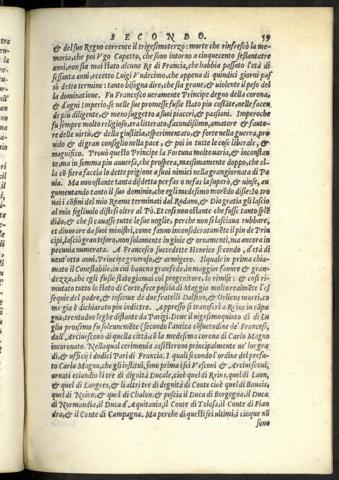 SECONDO. 59
& del suo Regno corrente il trigesimoterzo: morte che rinfrescò la me-
moria, che poi Vgo Capetto, che sono intorno a cinquecento sessantatre
anni, non sia mai stato alcuno Re di Francia, che habbia passato l'età di
sessanta anni, eccetto Luigi Vndecimo, che appena di quindici giorni paf
sò detto termine: tanto bisogna dire, che sia graue, & violente il peso del
la dominatione. Fu Francesco ueramente Principe degno della corona,
& d'ogni Imperio, se nelle sue promesse fusse stato piu costãte, nelle faccen
de piu diligente, & meno suggetto a suoi piaceri, & passioni. Imperoche
fu sempre molto religioso, tra literato, facondissimo, amatore & fauto
re delle virtù, & della giustitia, esperimentato, & forte nella guerra, pro
uido & di gran consiglio nella pace, & poi in tutte le cose liberale, &
magnifico. Prouò questo Principe la Fortuna molto uaria, & inconstan
te, ma in somma piu auuersa, che prospera, massimamente doppo, che el-
la cõ fiera faccia lo dette prigione a suoi nimici nella gran giornata di Pa
uia. Ma non ostante tanta disdetta per fas o nefas la superò, & uinse, au
mentando tanto il suo dominio, che egli medesimo morẽdo disse: lo tro
nai i cõfini del mio Reame terminati dal Rodano, & Dio gratia gli lascio
al mio figliuolo distesi oltre al Pò. Et così non ostante che fusse tanto spẽ
dito, & che si cauasse tutte le sue voglie, perche non si lasciaua rubbare,
et diuorare da suoi ministri, come fanno inconsideratamẽte il piu de Prin
cipi, lasciò gran tesoro, non solamente in gioie & ornamenti, ma ancora in
pecunia numerata. A Francesco succedette Henrico secondo, d'età di
uent'otto anni, Principe generoso, & armigero. Ilquale in prima chia-
mato il Conestabile, anchi buona gran sede, in maggior fauore & gran-
dezza, che egli fusse stato giamai col progenitore, lo rimise: & così ri-
mutato tutto lo stato di Corte, fece poscia di Maggio molto realmẽte l'es
sequie del padre, & insieme de due fratelli Dalfino, & Orliens morti, co
me già è dichiarato piu indietro. Appresso si transferì a Reins in cãpa
gna, trentadue leghe distante da Parigi. Doue il uigesimoquinto dì di Lu
glio prossimo fu solennemẽte (secondo l'antica cõsuetudine de' Francesi,
dall'Arciuescouo di quella città, cõ la medesima corona di Carlo Magno
incoronato. Nella qual cerimonia assisterono principalmente ne' lor gra
di, & ufficij i dodici Pari di Francia. I quali secondo l'ordine del prefa-
to Carlo Magno, che gli instituì, sono prima sei Vescoui & Arciuescoui,
ornati etiandio li tre di dignità Ducale, cioè quel di Reins, quel di Laon,
& quel di Langres, & li altri tre di dignità di Conte cioè quel di Bouais,
quel di Noion, & quel di Chalon: & poscia il Duca di Borgogna, il Duca
di Normandia, il Duca d'Aquitania, il Conte di Tolosa, il Conte di Fian
dra, & il Conte di Campagna. Ma perche di questi sei ultimi, i cinque nõ
sono